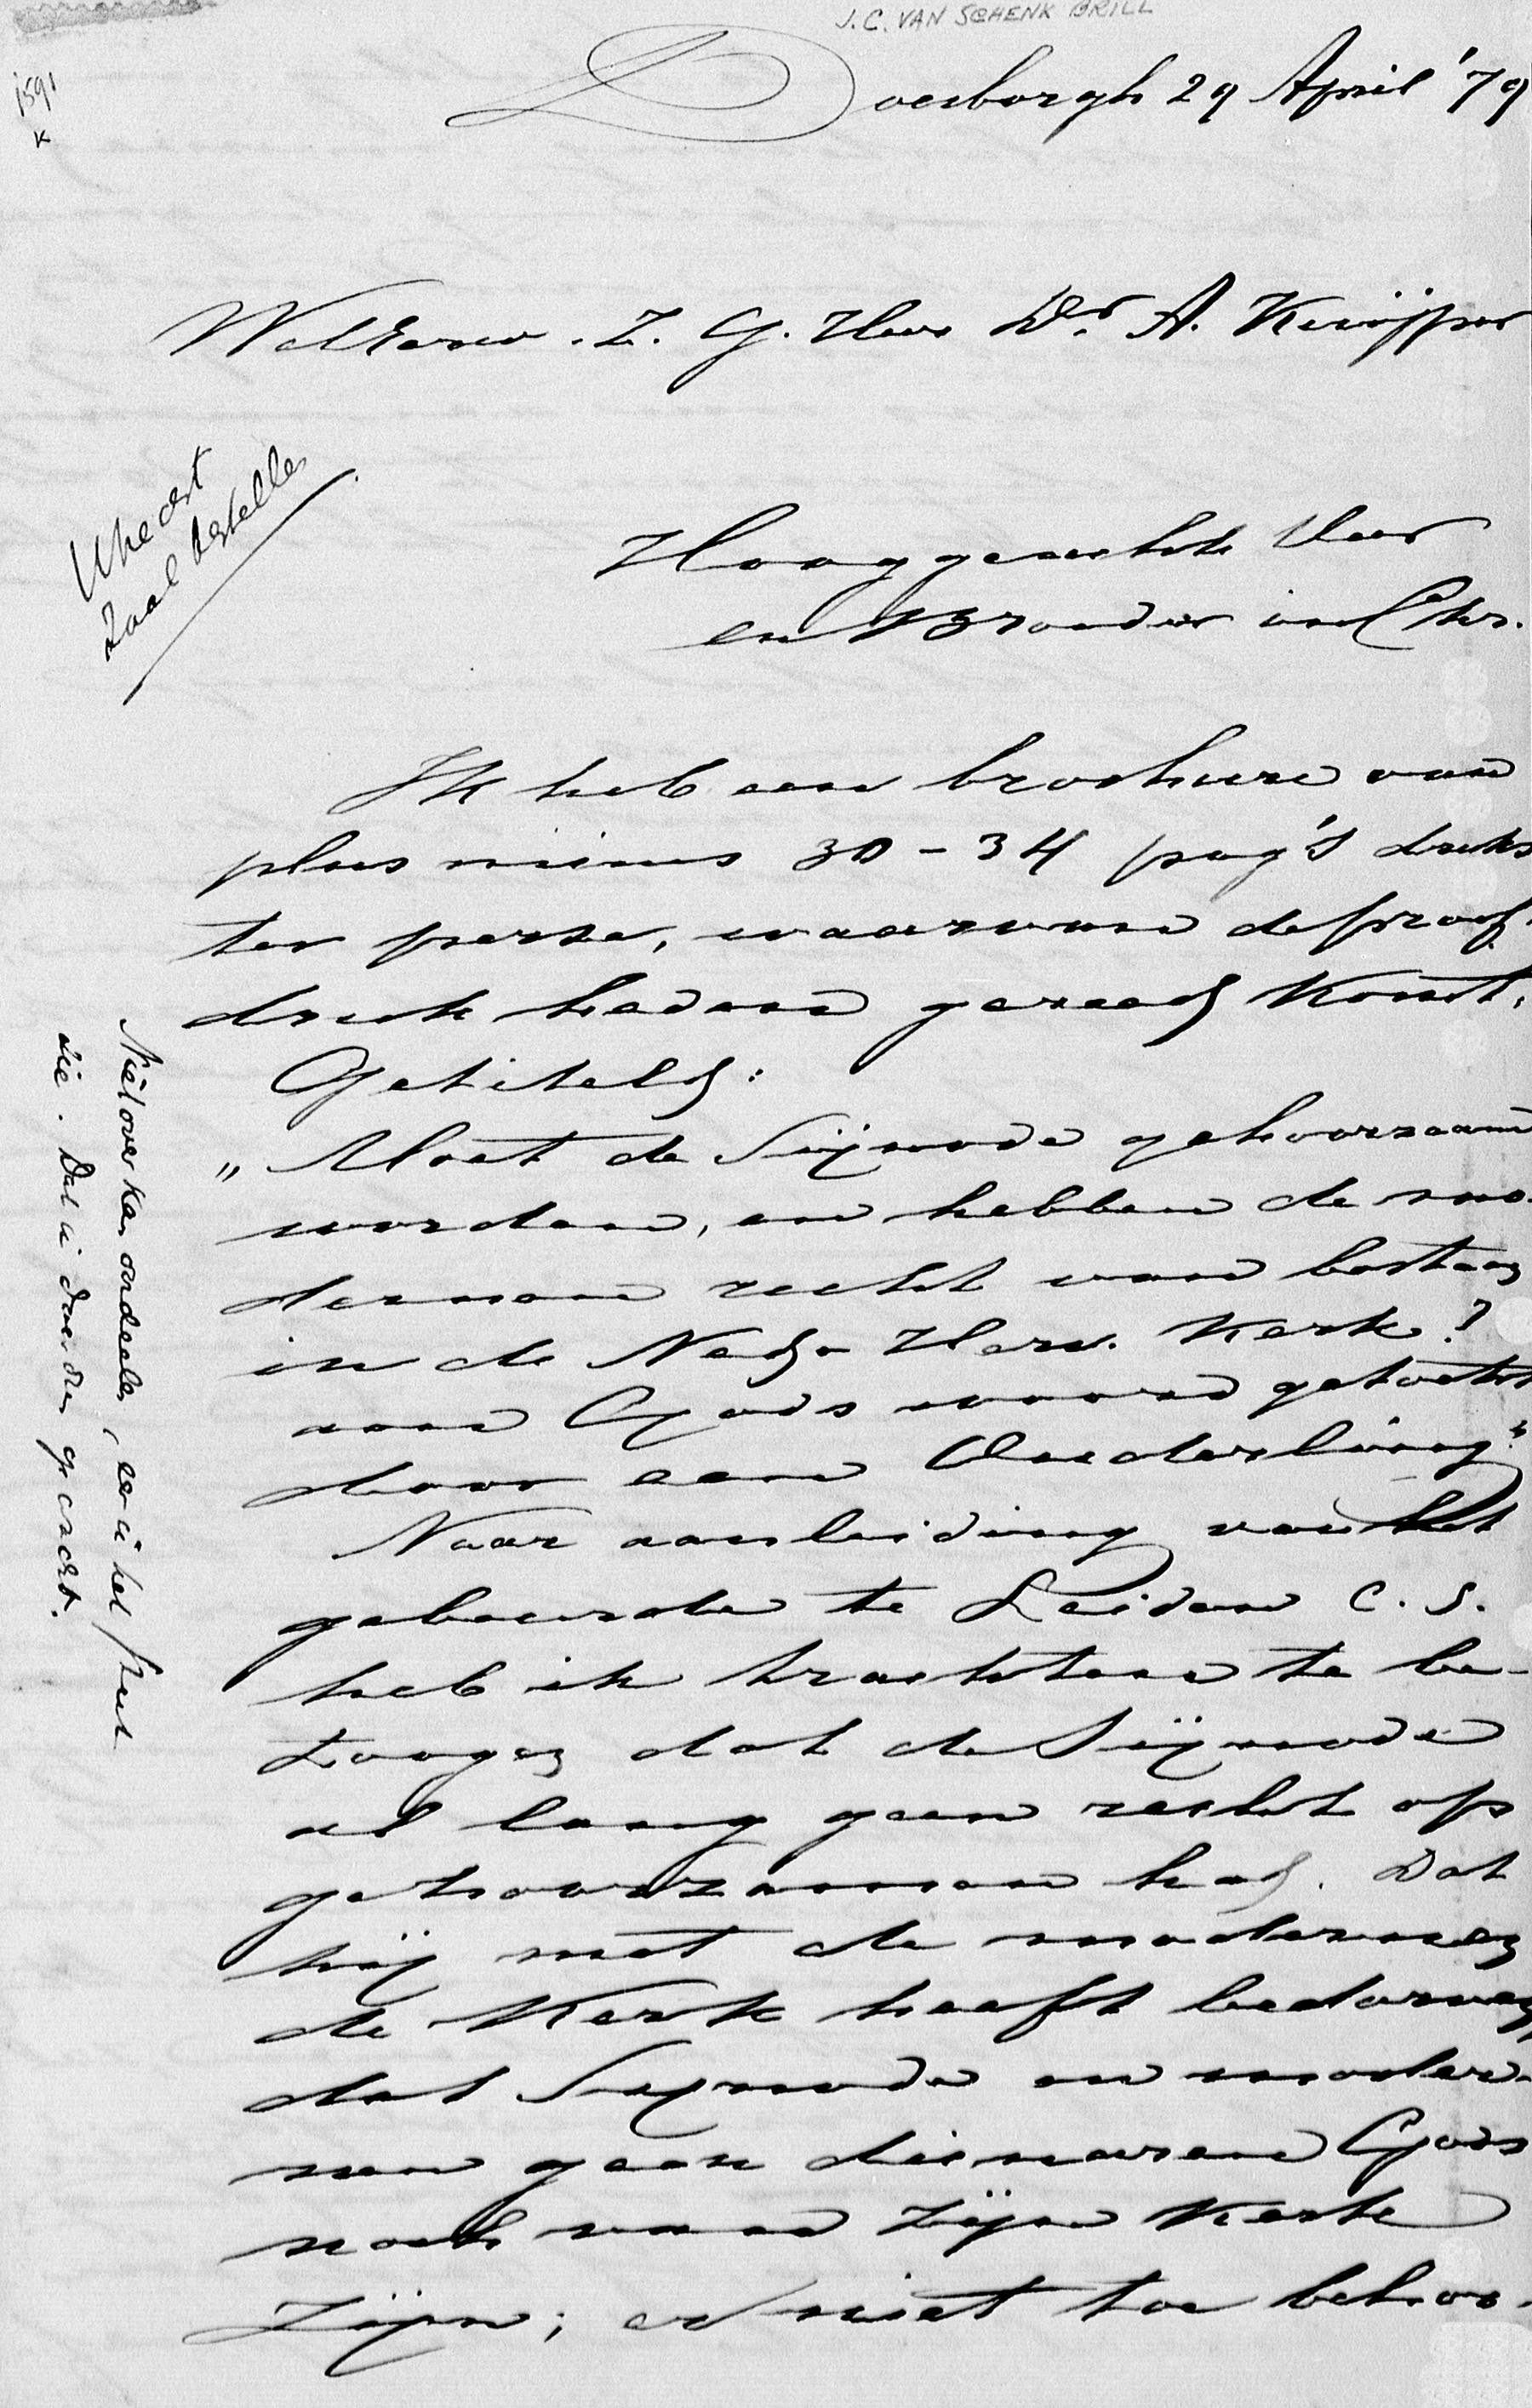 J.C. VAN SCHENK BRILL
1591
K
Doesborgh 29 April '79
WelEerw. Z. G. Heer Dr. A. Kuijper
Zaal bestellen
Hooggeachte Heer
en Broeder in Chr.
Ik heb een brochure van
plus minus 30-34 pag's druks
ter perse, waarvan de proef
druk heden gereed komt.
Getiteld:
"Moet de Sijnode gehoorzaamd
worden, en hebben de mo-
dernen recht van bestaan
in de Ned. Herv. Kerk?
aan Gods woord getoetst
door een Ouderling"
Naar aanleiding van het
gebeurde te Leiden c.s.
heb ik trachten te be-
toogen dat de Sijnode
al lang geen recht op
gehoorzamen had. Dat
hij met de modernen
de Kerk heeft bedorven,
dat Sijnode en moder-
nen geen dienaren Gods
noch van Zijn Kerk
zijn; er niet toe behoo-
Niet over kan oordeelen, eer ik het stuk
zie. Dat ik drander